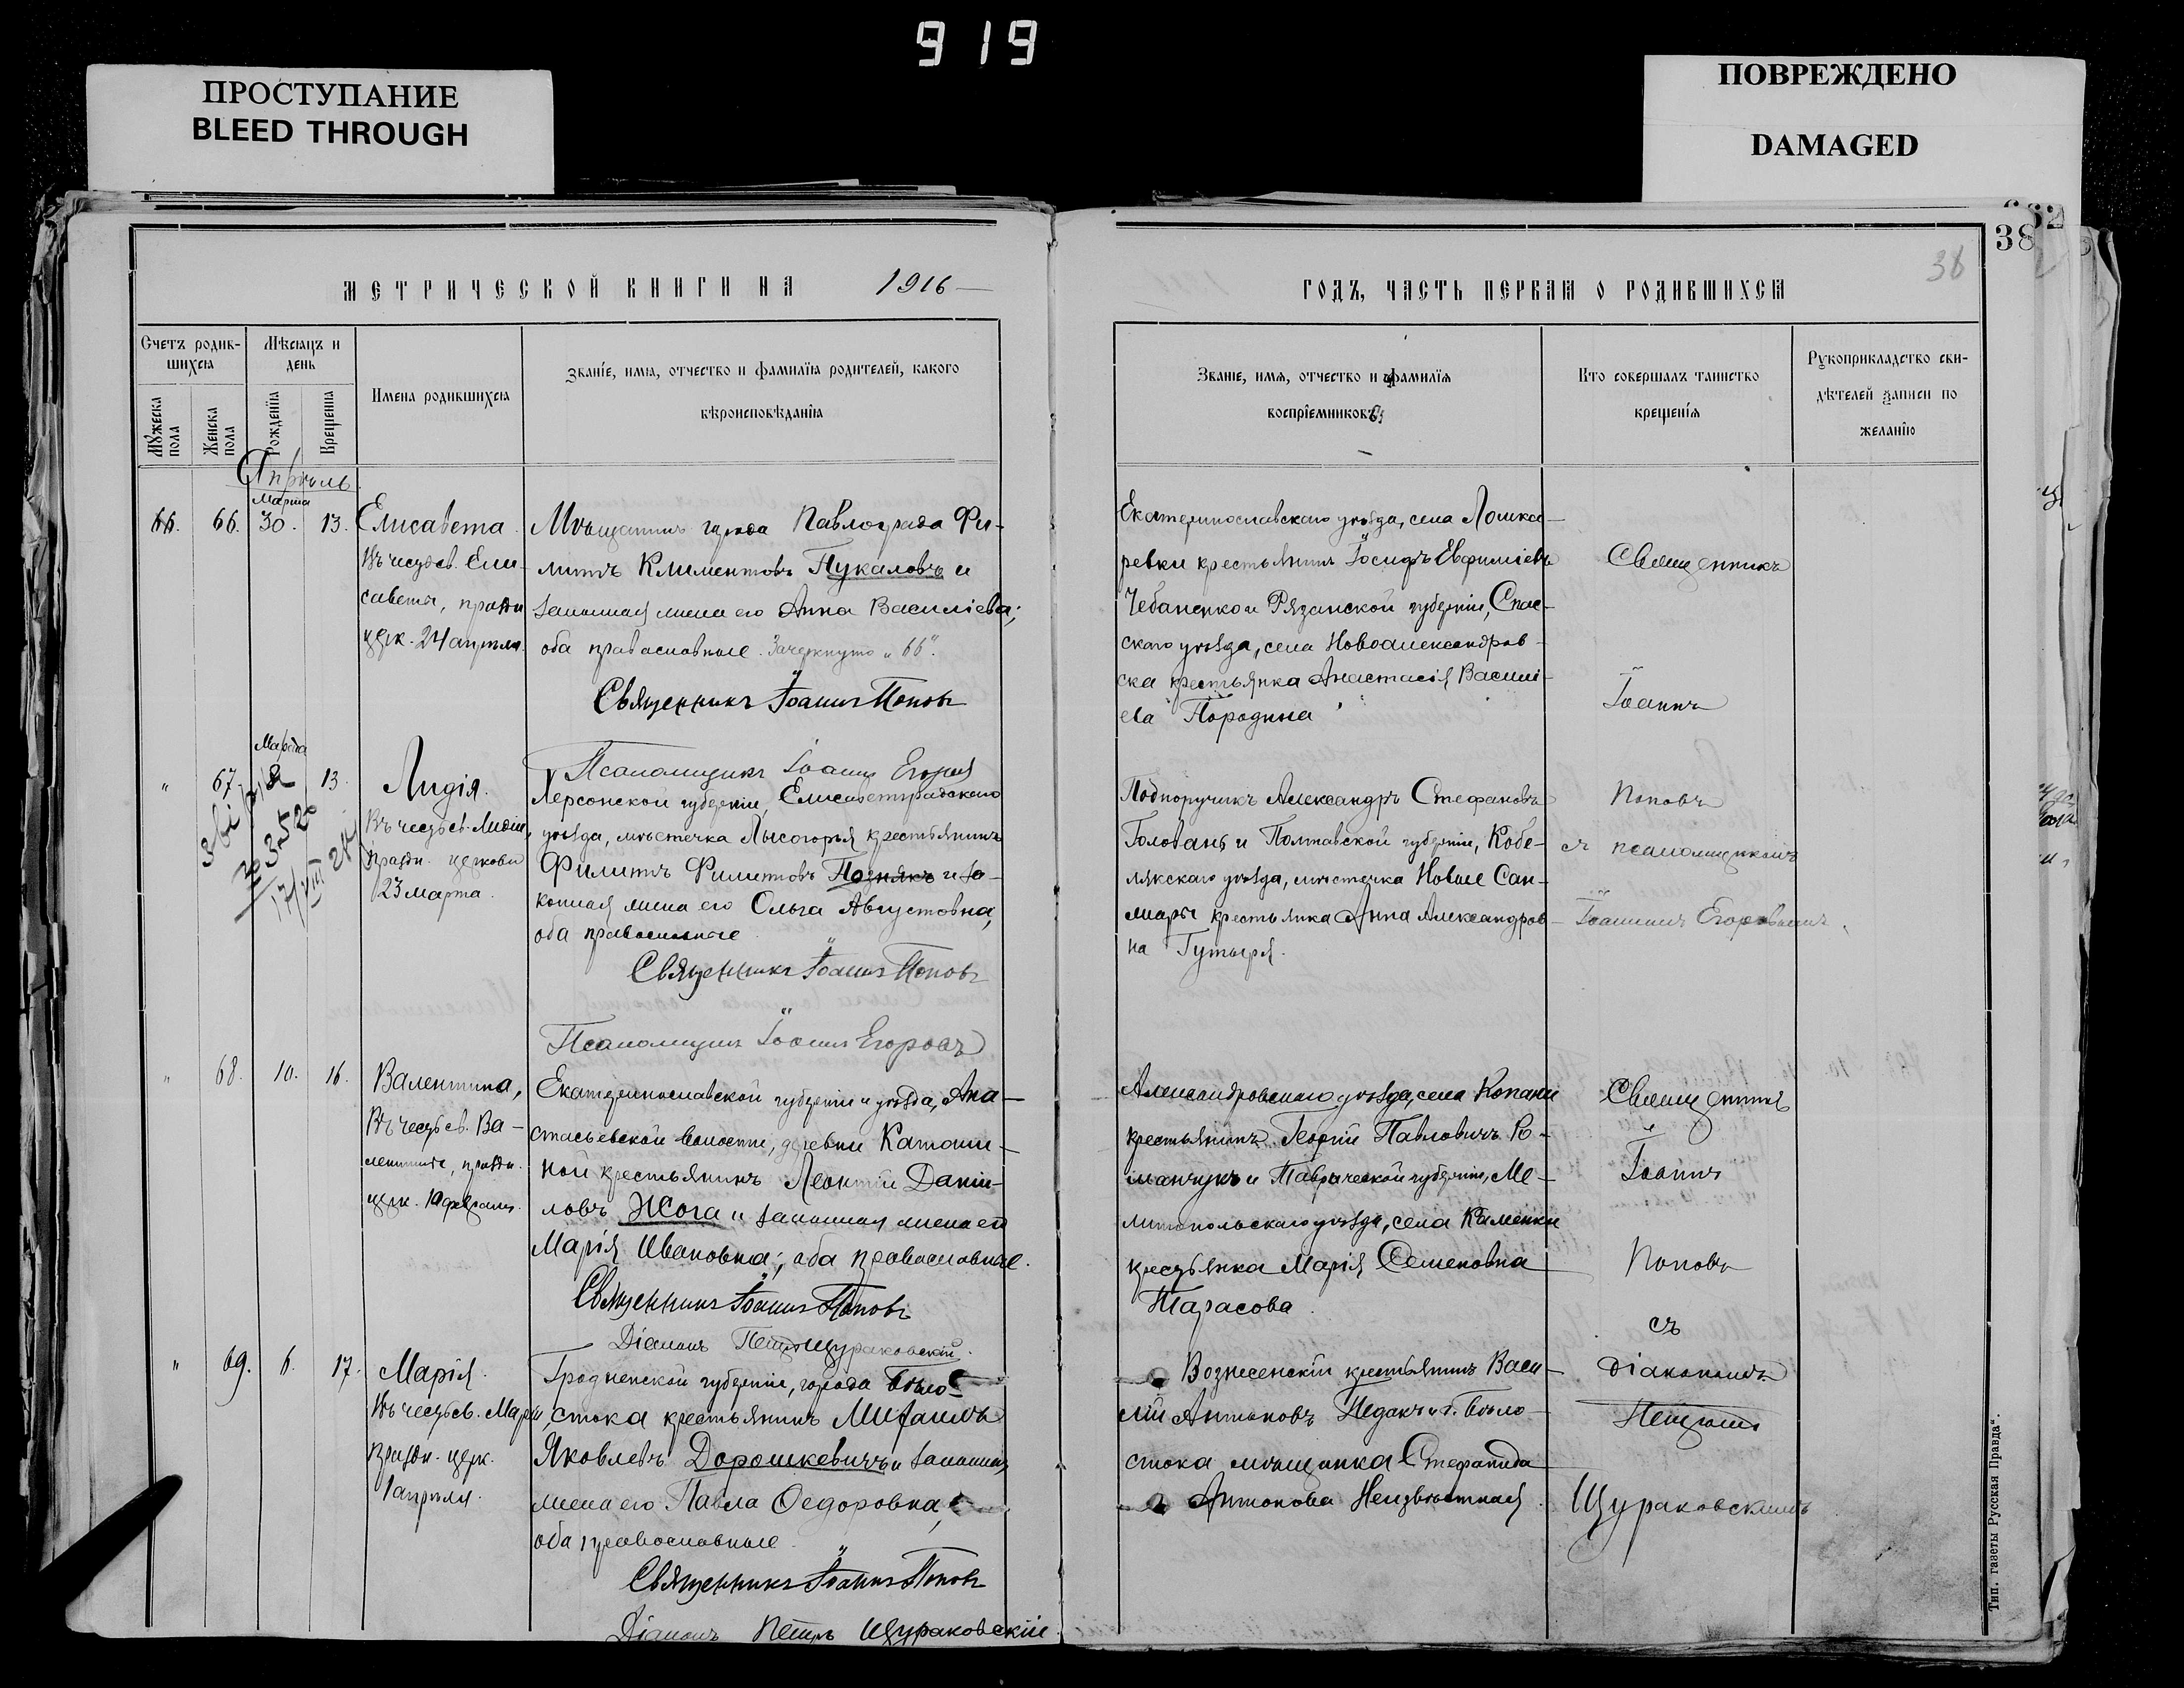 919
ПРОСТУПАНИЕ
BLEED THROUGH
ПОВРЕЖДЕНО
DAMAGED
38
38
МЕТРИЧЕСКОЙ КНИГИ НА 1916
Счетъ родив-
шихся
Мѣсяцъ и
день
Мужеска пола
Женска пола
Рожденія
Крещенія
Имена родившихся
Званіе, имя, отчество и фамилія родителей, какого
вѣроисповѣданія
Апрѣль
Марта
66. 66. 30. 13. Елисавета
Въ честь св. Ели-
саветы, праздн.
церк. 24 апрѣля.
Мѣщанинъ города Павлограда Фи-
липпъ Климентовъ Пукаловъ и
законная жена его Анна Василіева;
оба православные. Зачеркнуто „66“.
Священникъ Іоаннъ Поповъ
Псаломщикъ Іоаннъ Егоровъ
Марта
" 67. 13. Лидія.
Въ честь св. Лидіи,
праздн. церковью
23 марта.
Херсонской губерніи, Елисаветградскаго
уѣзда, мѣстечка Лысогорья крестьянинъ
Филиппъ Филиповъ Познякъ и за-
конная жена его Ольга Августовна,
оба православные
Священникъ Іоаннъ Поповъ
Псаломщикъ Іоаннъ Егоровъ
" 68. 10. 16. Валентина,
Въ честь св. Ва-
лентины, праздн.
церк. 10 февраля.
Екатеринославской губерніи и уѣзда, Ана-
стасьевской волости, деревни Катощи-
ной крестьянинъ Леонтій Даніи-
ловъ Жога и законная жена его
Марія Ивановна; оба православные.
Священникъ Іоаннъ Поповъ
Діаконъ Петръ Щураковскій.
" 69. 6. 17. Марія.
Въ честь св. Маріи,
праздн. церк.
1 апрѣля.
Гродненской губерніи, города Бѣло-
стока крестьянинъ Михаилъ
Яковлевъ Дорошкевичъ и законная
жена его Павла Ѳедоровна,
оба православные
Священникъ Іоаннъ Поповъ
Діаконъ Петръ Щураковскій
ГОДЪ, ЧАСТЬ ПЕРВАЯ О РОДИВШИХСЯ
Званіе, имя, отчество и фамилія
воспріемниковъ
Кто совершалъ таинство
крещенія
Рукоприкладство сви-
дѣтелей записи по
желанію
Екатеринославскаго уѣзда, села Лошка-
ревки крестьянинъ Іосифъ Евфиміевъ
Чебаненко и Рязанской губерніи, Спас-
скаго уѣзда, села Новоалександров-
ска крестьянка Анастасія Васили-
ева Породина
Священникъ
Іоаннъ
Подпоручикъ Александръ Стефановъ
Головань и Полтавской губерніи, Кобе-
лякскаго уѣзда, мѣстечка Новые Сан-
жары крестьянка Анна Александров-
на Гутыря.
Поповъ
съ псаломщикомъ
Іоанномъ Егоровымъ.
Александровскаго уѣзда, села Копани
крестьянинъ Георгій Павловичъ Ро-
манчукъ и Таврической губерніи, Ме-
литопольскаго уѣзда, села Каменки
крестьянка Марія Семеновна
Тарасова.
Священникъ
Іоаннъ
Поповъ
съ
Вознесенскій крестьянинъ Васи-
лій Антоновъ Недакъ и г. Бѣло-
стока мѣщанка Стефанида
Антонова Неизвѣстная.
діакономъ
Петромъ
Щураковскимъ
Тип. газеты „Русская Правда“.